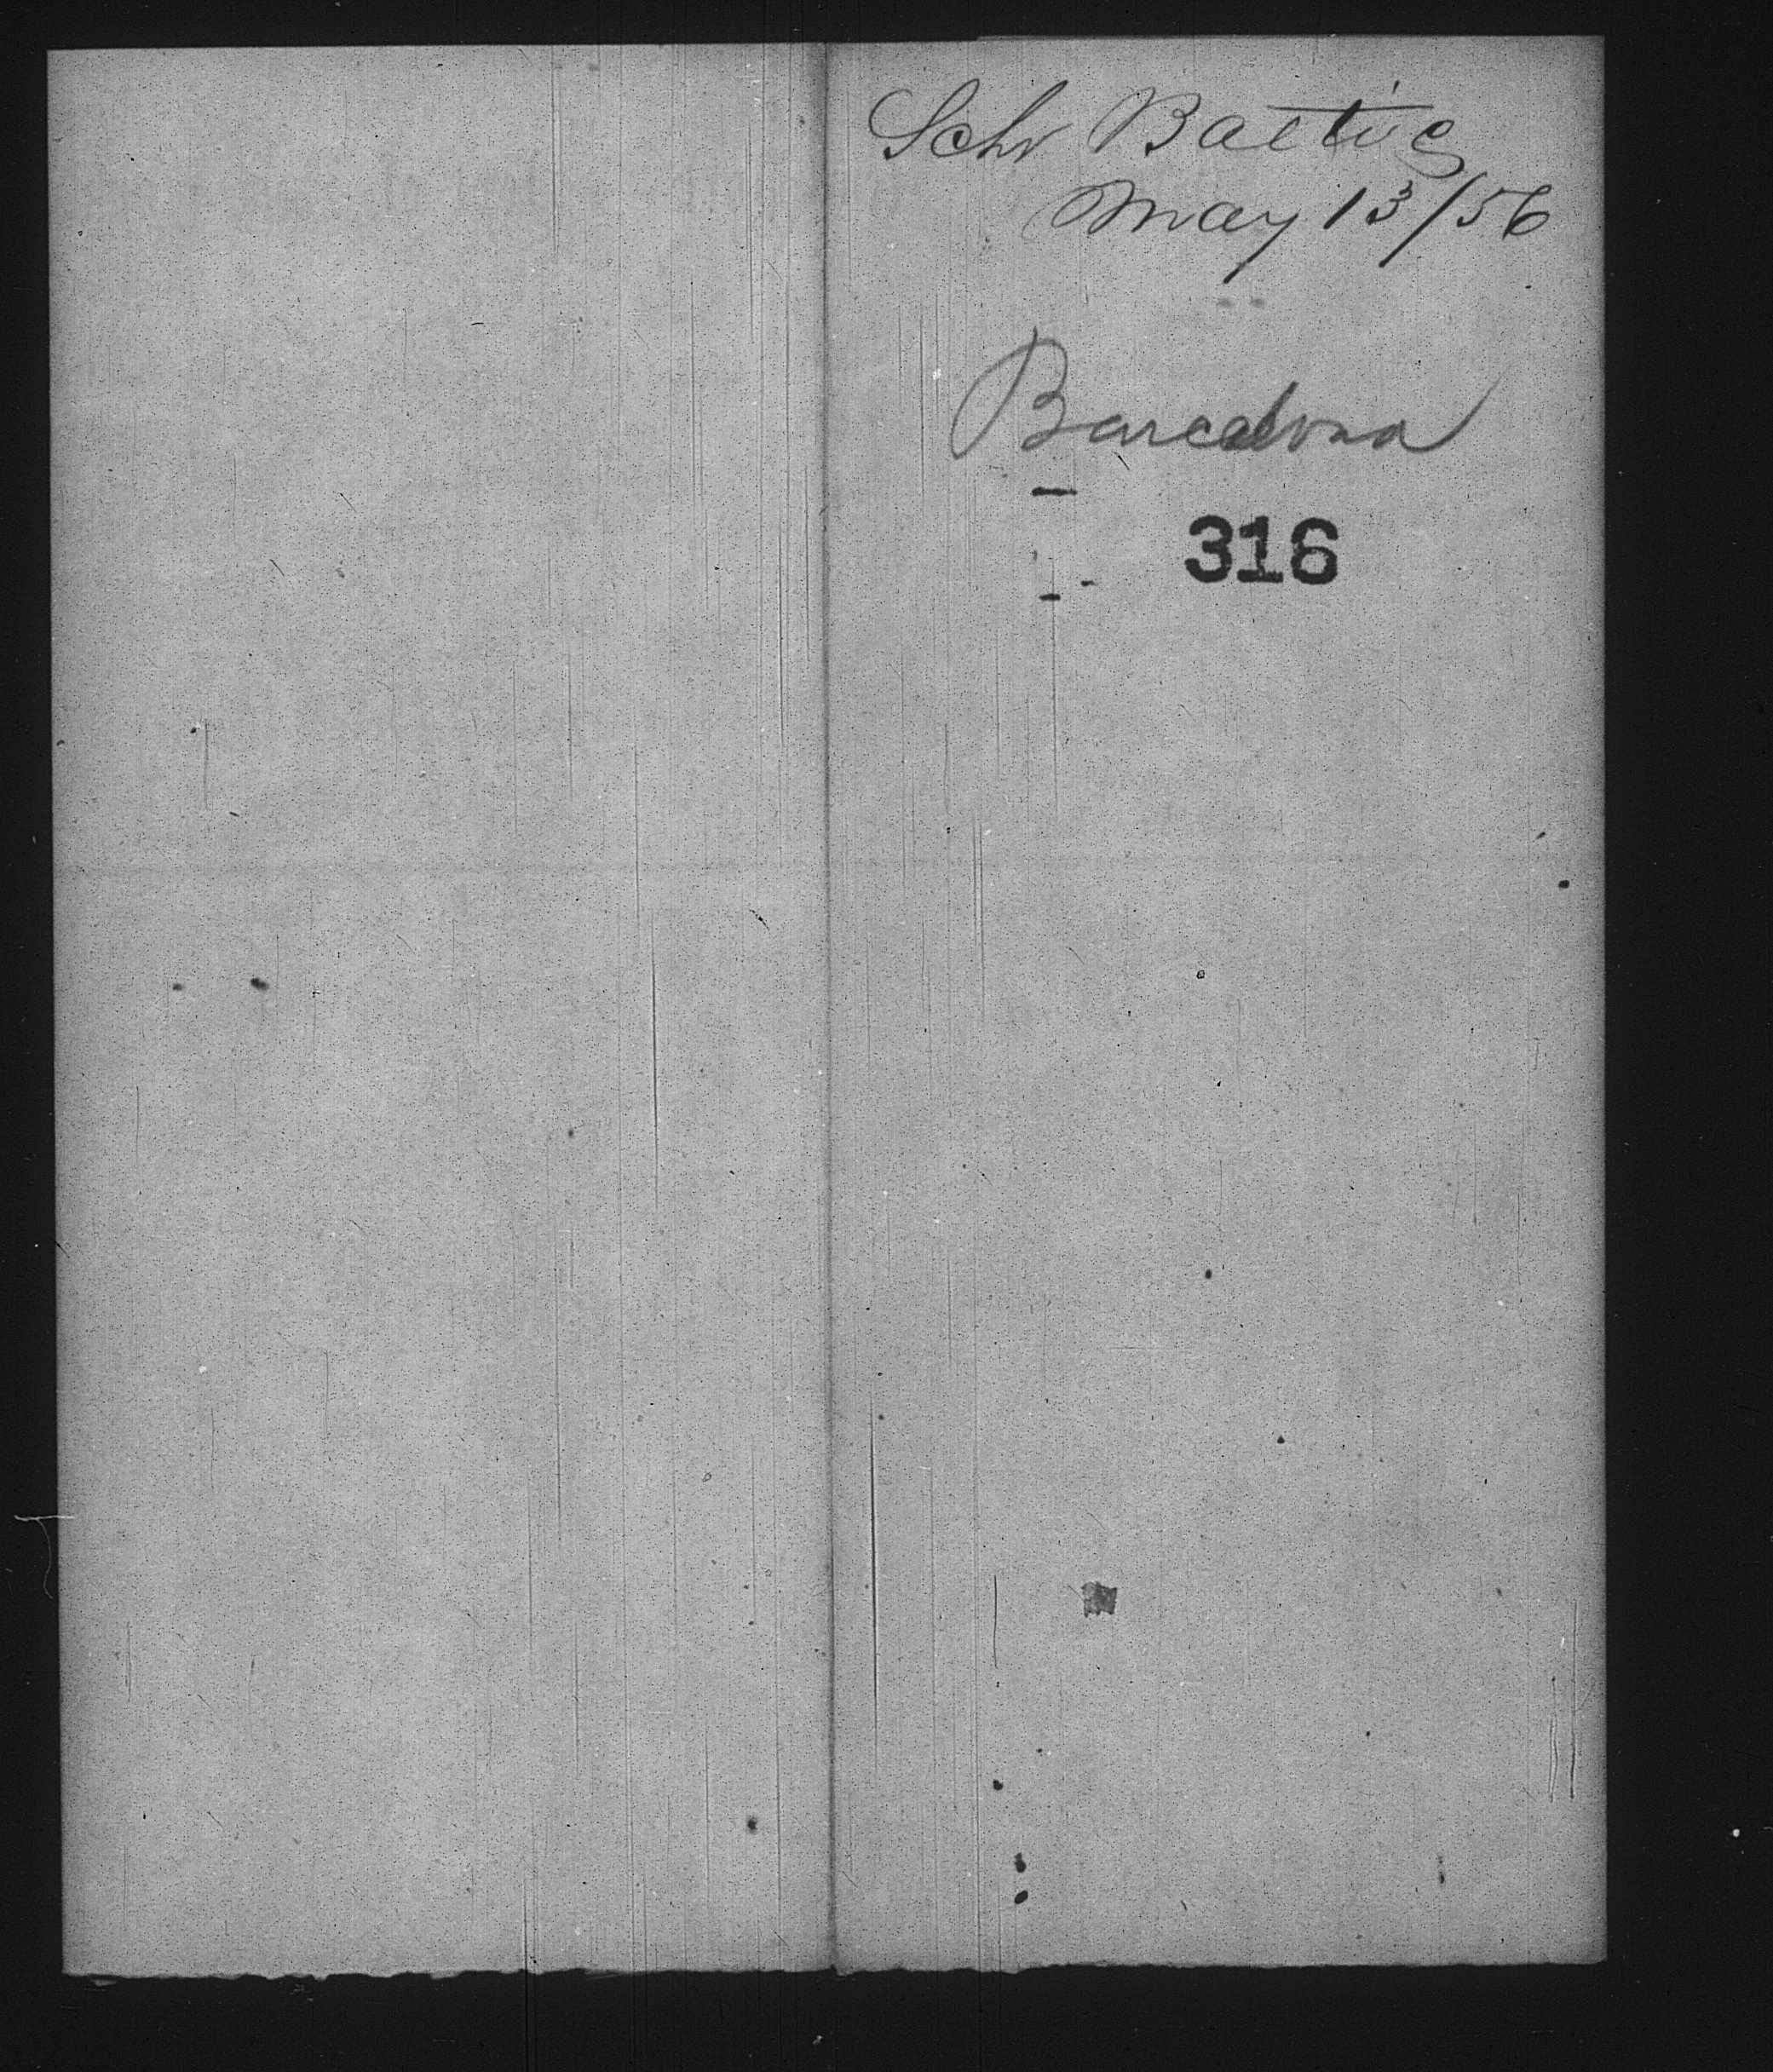 Schr Baltic
May 13/56
Barcelona
316